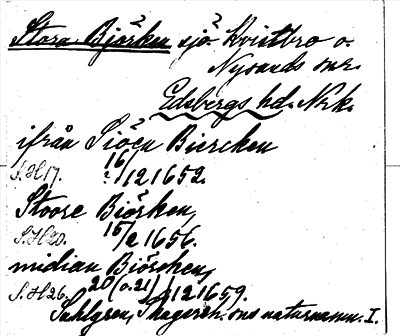 Stora Björken sjö Kvistbro o.
Nysunds snr.
Edsbergs hd. Nrk.
ifrån Siöen Biercken
S.H17. 16/? 12 1652.
Stoore Biörken,
S.H20. 15/2 1656.
midian Biörcken,
S.H26. 20 (o.21)/9 12 1659.
Sahlgren, Skagersh. ons naturnamn. I.